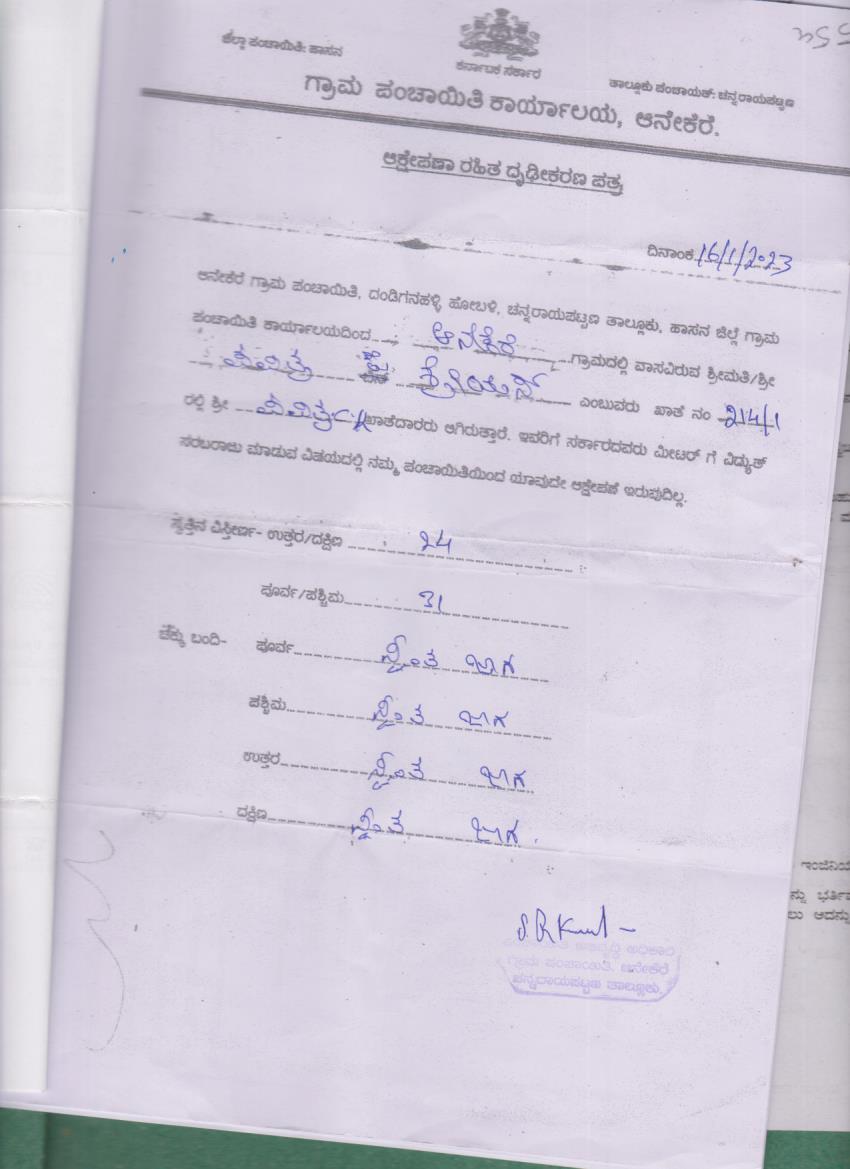 354
ಜಿಲ್ಲಾ ಪಂಚಾಯಿತಿ: ಹಾಸನ
ಕರ್ನಾಟಕ ಸರ್ಕಾರ
ತಾಲ್ಲೂಕು ಪಂಚಾಯತ್: ಚನ್ನರಾಯಪಟ್ಟಣ
ಗ್ರಾಮ ಪಂಚಾಯಿತಿ ಕಾರ್ಯಾಲಯ, ಆನೇಕೆರೆ.
ಆಕ್ಷೇಪಣಾ ರಹಿತ ದೃಢೀಕರಣ ಪತ್ರ
ದಿನಾಂಕ 16/1/2023
ಆನೇಕೆರೆ ಗ್ರಾಮ ಪಂಚಾಯಿತಿ, ದಂಡಿಗನಹಳ್ಳಿ ಹೋಬಳಿ, ಚನ್ನರಾಯಪಟ್ಟಣ ತಾಲ್ಲೂಕು, ಹಾಸನ ಜಿಲ್ಲೆ ಗ್ರಾಮ
ಪಂಚಾಯಿತಿ ಕಾರ್ಯಾಲಯದಿಂದ ಆನೆಕೆರೆ ಗ್ರಾಮದಲ್ಲಿ ವಾಸವಿರುವ ಶ್ರೀಮತಿ/ಶ್ರೀ
ಪವಿತ್ರ ಎಂಬುವರು ಖಾತೆ ನಂ 214/1
ರಲ್ಲಿ ಶ್ರೀ ಪವಿತ್ರ ಖಾತೆದಾರರು ಆಗಿರುತ್ತಾರೆ. ಇವರಿಗೆ ಸರ್ಕಾರದವರು ಮೀಟರ್ ಗೆ ವಿದ್ಯುತ್
ಸರಬರಾಜು ಮಾಡುವ ವಿಷಯದಲ್ಲಿ ನಮ್ಮ ಪಂಚಾಯಿತಿಯಿಂದ ಯಾವುದೇ ಆಕ್ಷೇಪಣೆ ಇರುವುದಿಲ್ಲ.
ಸ್ವತ್ತಿನ ವಿಸ್ತೀರ್ಣ- ಉತ್ತರ/ದಕ್ಷಿಣ 24
ಪೂರ್ವ/ಪಶ್ಚಿಮ 31
ಚೆಕ್ಕು ಬಂದಿ- ಪೂರ್ವ ಸ್ವಂತ ಜಾಗ
ಪಶ್ಚಿಮ ಸ್ವಂತ ಜಾಗ
ಉತ್ತರ ಸ್ವಂತ ಜಾಗ
ದಕ್ಷಿಣ ಸ್ವಂತ ಜಾಗ.
ಅಭಿವೃದ್ಧಿ ಅಧಿಕಾರಿ
ಗ್ರಾಮ ಪಂಚಾಯಿತಿ, ಆನೇಕೆರೆ
ಚನ್ನರಾಯಪಟ್ಟಣ ತಾಲ್ಲೂಕು.